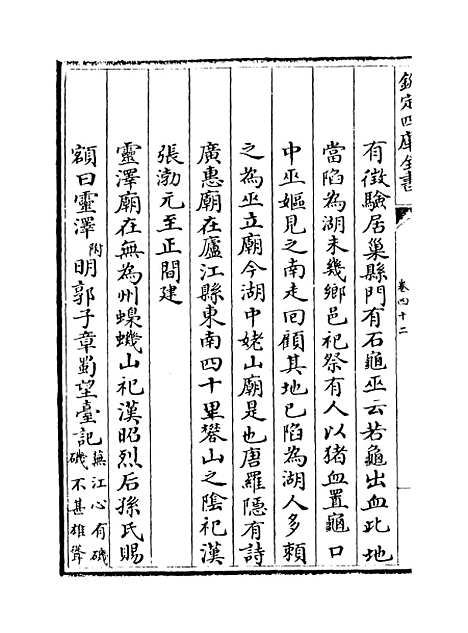 欽定四庫全書
卷四十二
有徴驗居巢縣門有石龜巫云若龜出血此地
當陷為湖未幾鄉邑祀祭有人以猪血置龜口
中巫嫗見之南走回顧其地已陷為湖人多頼
之為巫立廟今湖中姥山廟是也唐羅隱有詩
廣惠廟在廬江縣東南四十里礬山之陰祀漢
張渤元至正間建
靈澤廟在無為州蟂蟣山祀漢昭烈后孫氏賜
額曰靈澤附明郭子章蜀望臺記蕪江心有磯磯不甚雄聳